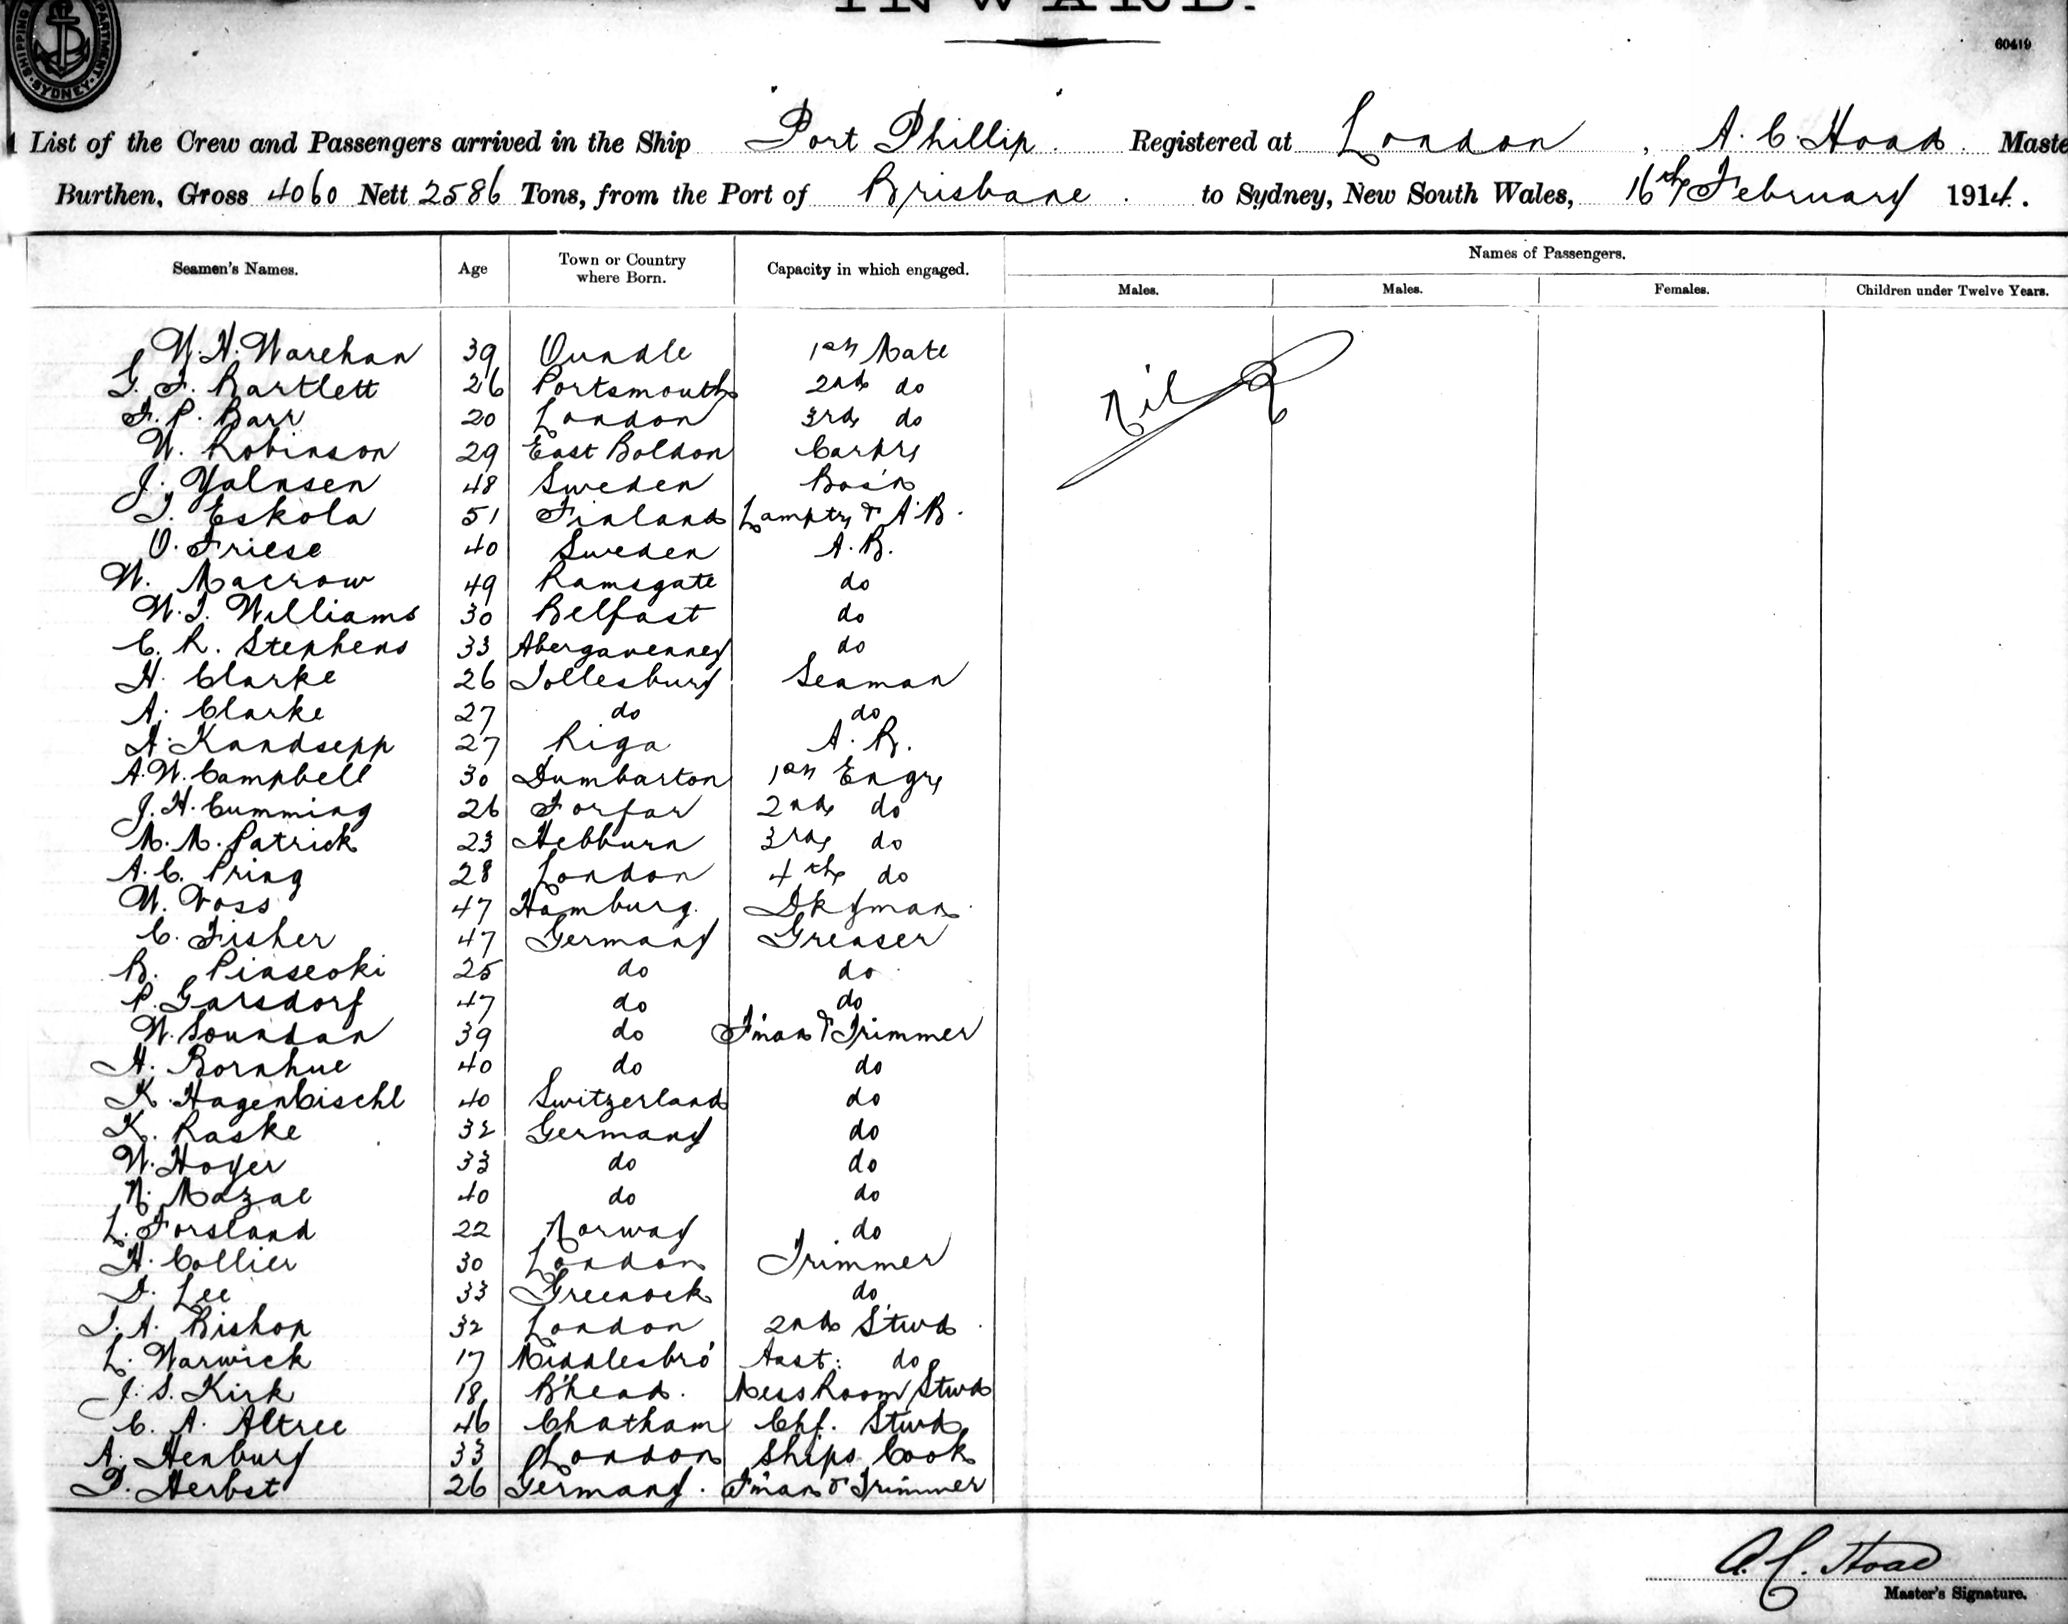 INWARD.
60419
SHIPPING DEPARTMENT SYDNEY
List of the Crew and Passengers arrived in the Ship Port Phillip. Registered at London, A. C. Hoad. Maste
Burthen, Gross 4060 Nett 2586 Tons, from the Port of Brisbane. to Sydney, New South Wales, 16th February 1914.
Seamen's Names. Age Town or Country where Born. Capacity in which engaged. Names of Passengers.
Males. Males. Females. Children under Twelve Years.
W. H. Warehan 39 Oundle 1st Mate
Nil
G. F. Bartlett 26 Portsmouth 2nd do
F. P. Barr 20 London 3rd do
W. Robinson 29 East Boldon Carptr
J. Yalnsen 48 Sweden Bos'n
J. Eskola 51 Finland Lamptr & A.B.
O. Friese 40 Sweden A.B.
W. Macrow 49 Ramsgate do
W. J. Williams 30 Belfast do
C. R. Stephens 33 Abergavenney do
H. Clarke 26 Tollesbury Seaman
A. Clarke 27 do do
A. Kandsepp 27 Riga A.B.
A. W. Campbell 30 Dumbarton 1st Engr
J. H. Cumming 26 Forfar 2nd do
M. M. Patrick 23 Hebburn 3rd do
A. C. Pring 28 London 4th do
W. Voss 47 Hamburg. Dkyman
C. Fisher 47 Germany Greaser
B. Piaseoki 25 do do
P. Garsdorf 47 do do
W. Soundan 39 do F'man & Trimmer
H. Bornhue 40 do do
K. Hagenbischl 40 Switzerland do
K. Raske 32 Germany do
W. Hoyer 33 do do
N. Mazae 40 do do
L. Forsland 22 Norway do
H. Collier 30 London Trimmer
D. Lee 33 Greenock do
J. A. Bishop 32 London 2nd Stwd
L. Warwick 17 Middlesbro' Asst: do
J. S. Kirk 18 B'head. Mess Room Stwd
C. A. Altree 46 Chatham Chf. Stwd
A. Henbury 33 London Ships Cook
P. Herbst 26 Germany. F'man & Trimmer
A. C. Hoad
Master's Signature.